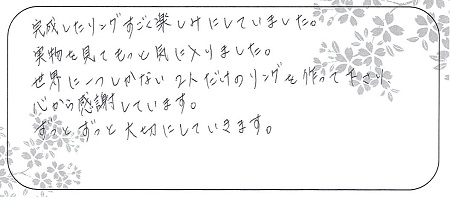 完成したリングすごく楽しみにしていました。
実物を見てもっと気に入りました。
世界に一つしかない2人だけのリングを作って下さり
心から感謝しています。
ずっとずっと大切にしていきます。